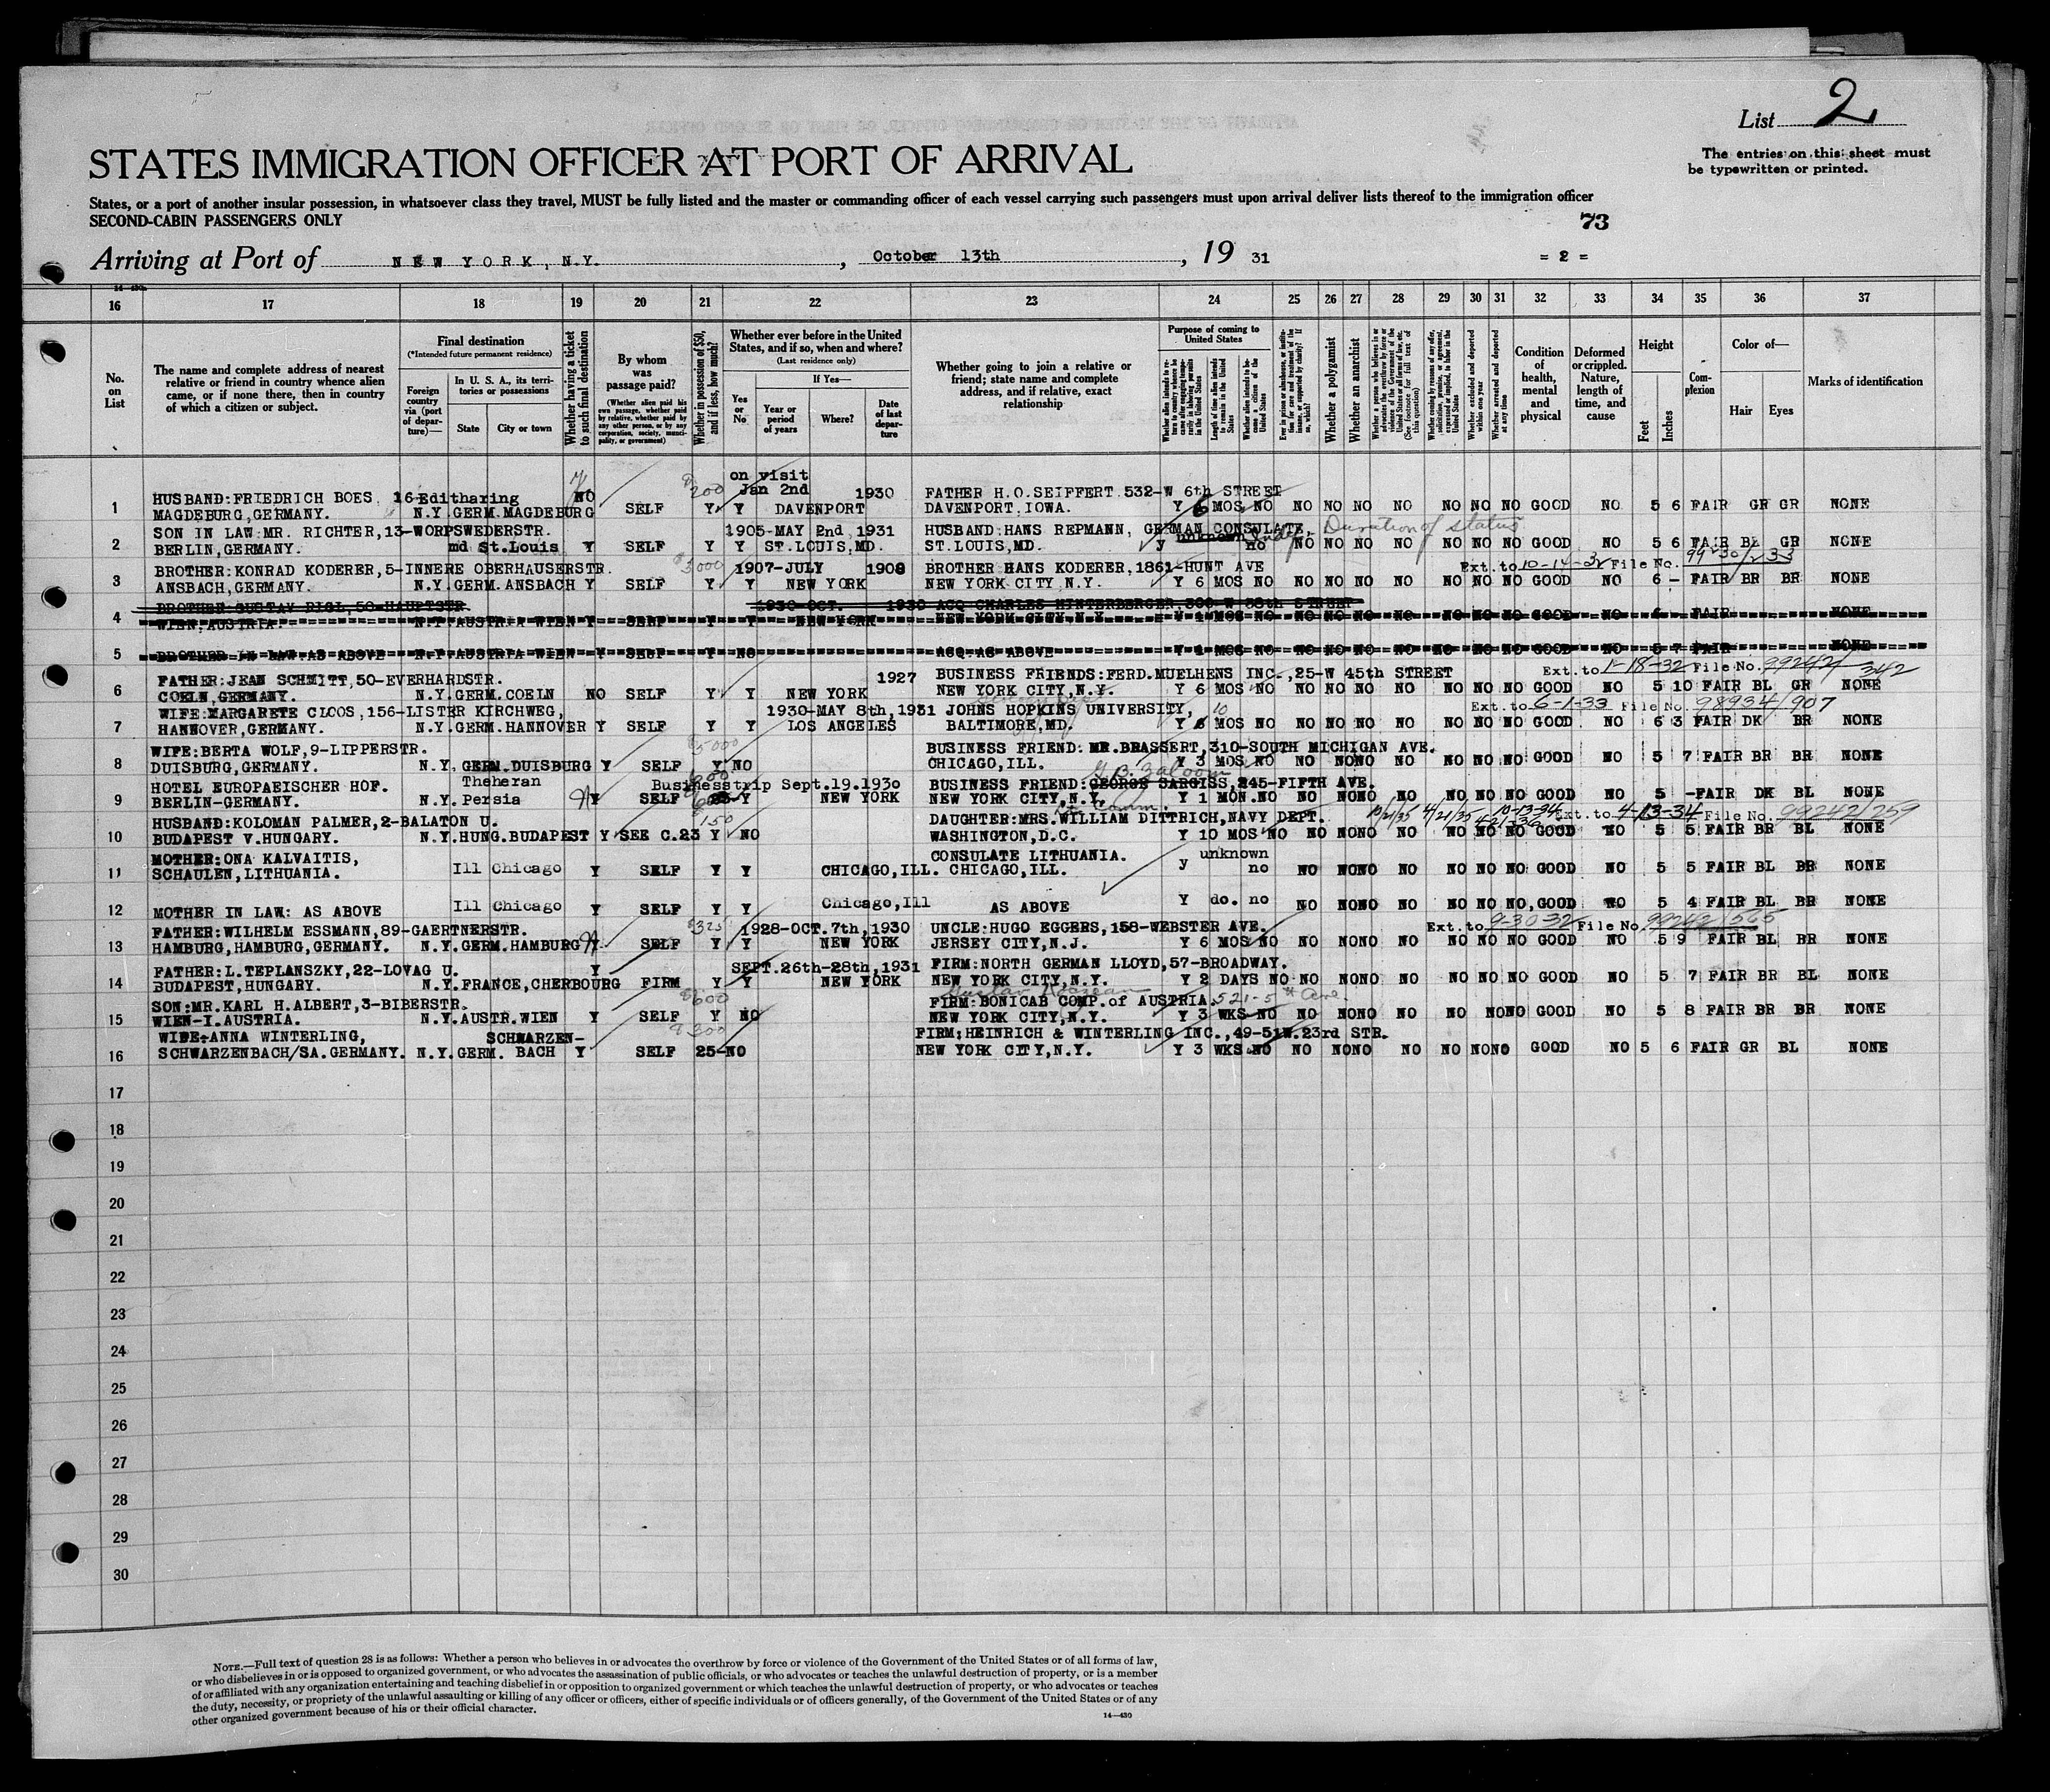 List 2
STATES IMMIGRATION OFFICER AT PORT OF ARRIVAL
The entries on this sheet must
be typewritten or printed.
States, or a port of another insular possession, in whatsoever class they travel, MUST be fully listed and the master or commanding officer of each vessel carrying such passengers must upon arrival deliver lists thereof to the immigration officer
SECOND-CABIN PASSENGERS ONLY
73
Arriving at Port of NEW YORK, N.Y., October 13th, 19 31
= 2 =
16 17 18 19 20 21 22 23 24 25 26 27 28 29 30 31 32 33 34 35 36 37
No. on List
The name and complete address of nearest relative or friend in country whence alien came, or if none there, then in country of which a citizen or subject.
Final destination
(*Intended future permanent residence)
Foreign country via (port of departure)—
In U. S. A., its territories or possessions
State
City or town
Whether having a ticket to such final destination
By whom was passage paid?
(Whether alien paid his own passage, whether paid by relative, whether paid by any other person, or by any corporation, society, municipality, or government)
Whether in possession of $50, and if less, how much?
Whether ever before in the United States, and if so, when and where?
(Last residence only)
If Yes—
Yes or No
Year or period of years
Where?
Date of last departure
Whether going to join a relative or friend; state name and complete address, and if relative, exact relationship
Purpose of coming to United States
Length of time alien intends to remain in the United States
Whether alien intends to become a citizen of the United States
Whether a polygamist
Whether an anarchist
Condition of health, mental and physical
Deformed or crippled. Nature, length of time, and cause
Height
Feet
Inches
Complexion
Color of—
Hair
Eyes
Marks of identification
on visit
200 Jan 2nd 1930
HUSBAND:FRIEDRICH BOES 16-Editharing NO FATHER H.O.SEIFFERT 532-W 6th STREET
1 MAGDEBURG,GERMANY. N.Y.GERM.MAGDEBURG SELF Y Y DAVENPORT DAVENPORT,IOWA. Y 6 MOS NO NO NO NO NO NO NO NO GOOD NO 5 6 FAIR GR GR NONE
SON IN LAW:MR. RICHTER,13-WORPSWEDERSTR. 1905-MAY 2nd 1931 HUSBAND:HANS REPMANN, GERMAN CONSULATE, Duration of status
2 BERLIN,GERMANY. md St.Louis Y SELF Y Y ST.LOUIS,MD. ST.LOUIS,MD. y unknown no NO NO NO NO NO NO NO GOOD NO 5 6 FAIR BL GR NONE
BROTHER:KONRAD KODERER,5-INNERE OBERHAUSERSTR. 1907-JULY 1908 BROTHER HANS KODERER,1861-HUNT AVE Ext. to 10-14-32 File No.
3 ANSBACH,GERMANY. N.Y.GERM.ANSBACH Y SELF Y Y NEW YORK NEW YORK CITY N.Y. Y 6 MOS NO NO NO NO NO NO NO NO GOOD NO 6 - FAIR BR BR NONE
BROTHER:GUSTAV RIGL,50-HAUPTSTR. 1930-OCT. 1930 ACQ CHARLES HINTERBERGER,300 W 58th STREET
4 WIEN,AUSTRIA. N.Y.AUSTRIA WIEN Y SELF Y Y NEW YORK NEW YORK CITY,N.Y. Y 1 MOS NO NO NO NO NO NO NO NO GOOD NO 6 - FAIR NONE
5 BROTHER IN LAW AS ABOVE N.Y.AUSTRIA WIEN Y SELF Y NO ACQ.AS ABOVE Y 1 MOS NO NO NO NO NO NO NO NO GOOD NO 5 7 FAIR NONE
FATHER:JEAN SCHMITT,50-EVERHARDSTR. 1927 BUSINESS FRIENDS:FERD.MUELHENS INC.,25-W 45th STREET Ext. to 1-18-32 File No. 99242/342
6 COELN,GERMANY. N.Y.GERM.COELN NO SELF Y Y NEW YORK NEW YORK CITY,N.Y. Y 6 MOS NO NO NO NO NO NO NO NO GOOD NO 5 10 FAIR BL GR NONE
WIFE:MARGARETE CLOOS,156-LISTER KIRCHWEG, 1930-MAY 8th,1931 JOHNS HOPKINS UNIVERSITY, 10 Ext. to 6-1-33 File No. 98934/907
7 HANNOVER,GERMANY. N.Y.GERM.HANNOVER Y SELF Y Y LOS ANGELES BALTIMORE,MD. Y 6 MOS NO NO NO NO NO NO NO NO GOOD NO 6 3 FAIR DK BR NONE
WIFE:BERTA WOLF,9-LIPPERSTR. 5000 BUSINESS FRIEND:MR.BRASSERT,310-SOUTH MICHIGAN AVE.
8 DUISBURG,GERMANY. N.Y. GERM.DUISBURG Y SELF Y NO CHICAGO,ILL. Y 3 MOS NO NO NO NO NO NO NO NO GOOD NO 5 7 FAIR BR BR NONE
HOTEL EUROPAEISCHER HOF. Theheran Businesstrip Sept.19.1930 BUSINESS FRIEND:GEORGE SARGISS,245-FIFTH AVE.
9 BERLIN-GERMANY. N.Y. Persia Y SELF Y NEW YORK NEW YORK CITY,N.Y. Y 1 MON.NO NO NONO NO NO NO NO GOOD NO 5 -FAIR DK BL NONE
HUSBAND:KOLOMAN PALMER,2-BALATON U. 150 DAUGHTER:MRS.WILLIAM DITTRICH,NAVY DEPT. Ext. to 4-13-34 File No. 99242/259
10 BUDAPEST V.HUNGARY. N.Y.HUNG.BUDAPEST Y SEE C.23 Y NO WASHINGTON,D.C. Y 10 MOS NO NO NONO NO NO NO NO GOOD NO 5 5 FAIR BR BL NONE
MOTHER:ONA KALVAITIS, CONSULATE LITHUANIA. unknown
11 SCHAULEN,LITHUANIA. Ill Chicago Y SELF Y Y CHICAGO,ILL. CHICAGO,ILL. y no NO NONO NO NO NO NO GOOD NO 5 5 FAIR BL BR NONE
12 MOTHER IN LAW: AS ABOVE Ill Chicago Y SELF Y Y Chicago,Ill AS ABOVE Y do. no NO NONO NO NO NO NO,GOOD NO 5 4 FAIR BL BR NONE
FATHER:WILHELM ESSMANN,89-GAERTNERSTR. $325 1928-OCT.7th,1930 UNCLE:HUGO EGGERS,158-WEBSTER AVE. Ext. to 9-30-32 File No. 99242/565
13 HAMBURG,HAMBURG,GERMANY. N.Y.GERM.HAMBURG Y. SELF Y Y NEW YORK JERSEY CITY,N.J. Y 6 MOS NO NO NONO NO NO NO NO GOOD NO 5 9 FAIR BL BR NONE
FATHER:L.TEPLANSZKY,22-LOVAG U. Y SEPT.26th-28th,1931 FIRM:NORTH GERMAN LLOYD,57-BROADWAY.
14 BUDAPEST,HUNGARY. N.Y.FRANCE,CHERBOURG FIRM Y Y NEW YORK NEW YORK CITY,N.Y. Y 2 DAYS NO NO NONO NO NO NO NO GOOD NO 5 7 FAIR BR BL NONE
SON:MR.KARL H.ALBERT,3-BIBERSTR. $600 FIRM:BONICAB COMP.of AUSTRIA. 521-5th Ave.
15 WIEN-I.AUSTRIA. N.Y.AUSTR.WIEN Y SELF Y NO NEW YORK CITY,N.Y. Y 3 WKS NO NO NONO NO NO NONO GOOD NO 5 8 FAIR BR BR NONE
WIFE-ANNA WINTERLING, SCHWARZEN- $300 FIRM;HEINRICH & WINTERLING INC.,49-51W.23rd STR.
16 SCHWARZENBACH/SA.GERMANY. N.Y.GERM. BACH Y SELF 25-NO NEW YORK CITY,N.Y. Y 3 WKS NO NO NONO NO NO NONO GOOD NO 5 6 FAIR GR BL NONE
17
18
19
20
21
22
23
24
25
26
27
28
29
30
NOTE.—Full text of question 28 is as follows: Whether a person who believes in or advocates the overthrow by force or violence of the Government of the United States or of all forms of law,
or who disbelieves in or is opposed to organized government, or who advocates the assassination of public officials, or who advocates or teaches the unlawful destruction of property, or is a member
of or affiliated with any organization entertaining and teaching disbelief in or opposition to organized government or which teaches the unlawful destruction of property, or who advocates or teaches
the duty, necessity, or propriety of the unlawful assaulting or killing of any officer or officers, either of specific individuals or of officers generally, of the Government of the United States or of any
other organized government because of his or their official character.
14—430